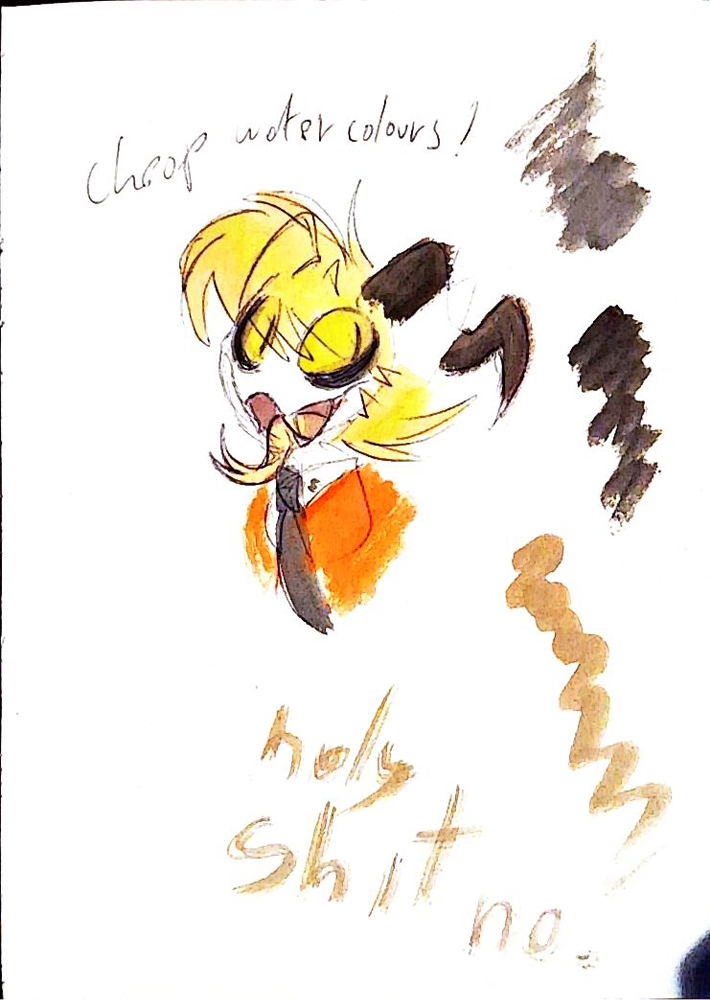 cheap watercolours!
holy
shit
no.